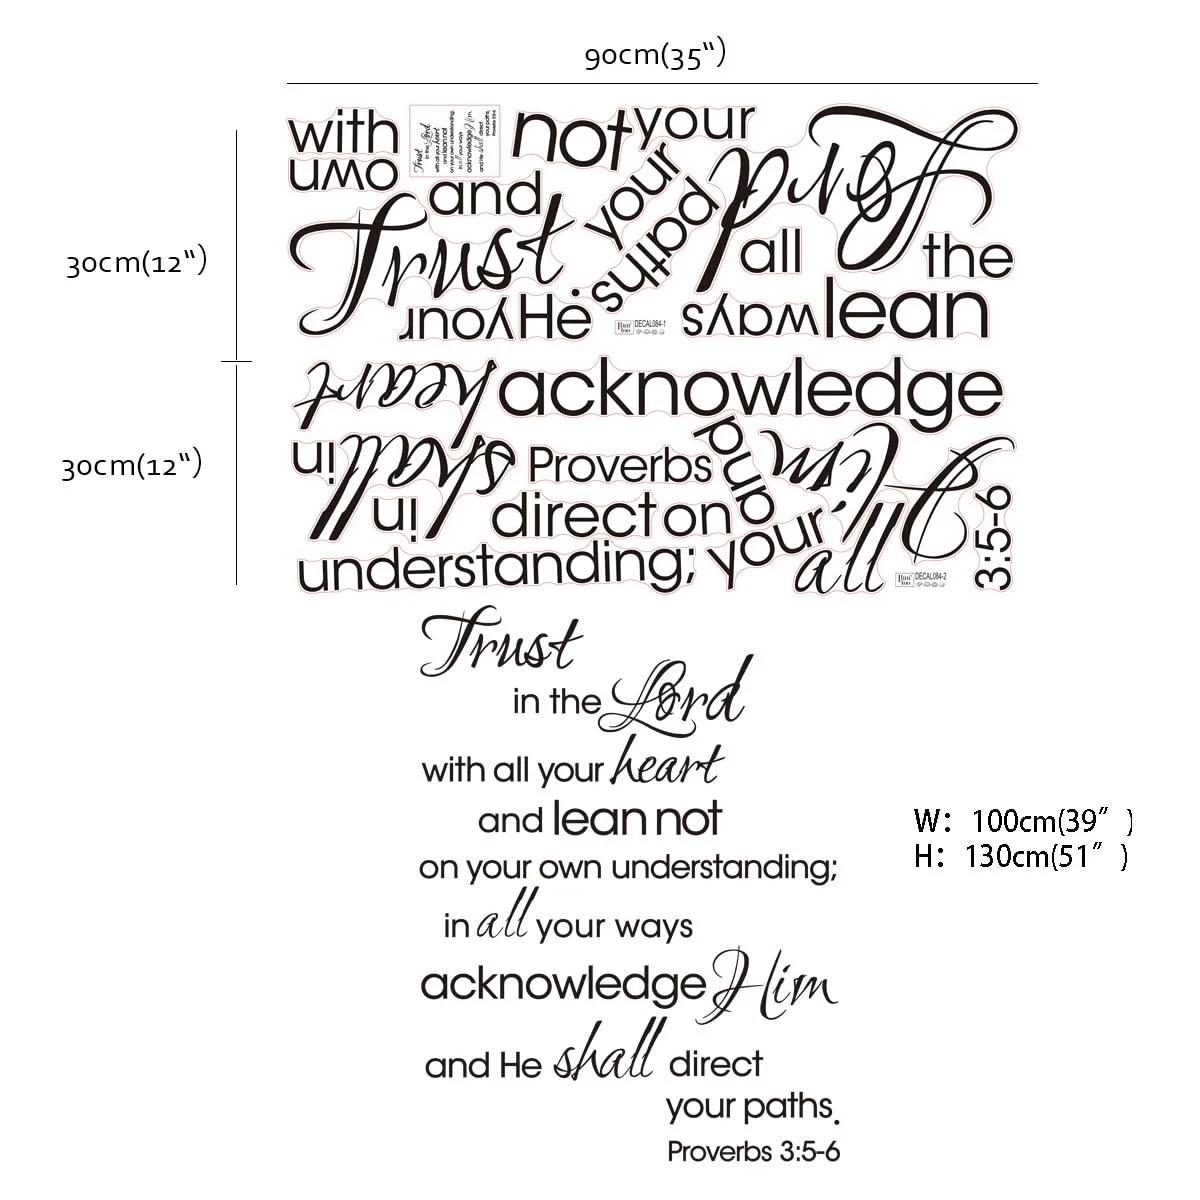 90cm(35“)
with
not
your
Lord
Trust
in the Lord
with all your heart
and lean not
on your own understanding;
in all your ways
acknowledge Him
and He shall direct
your paths.
Proverbs 3:5-6
own
and
your
paths
all
the
30cm(12“)
Trust
.
your
He
Run too
DECAL084-1
ways
lean
heart
acknowledge
30cm(12“)
in
shall
Proverbs
and
Him
in
direct
on
3:5-6
understanding;
your
all
Run too
DECAL084-2
Trust
in the Lord
with all your heart
and lean not
on your own understanding;
in all your ways
acknowledge Him
and He shall direct
your paths.
Proverbs 3:5-6
W: 100cm(39″ )
H: 130cm(51″ )